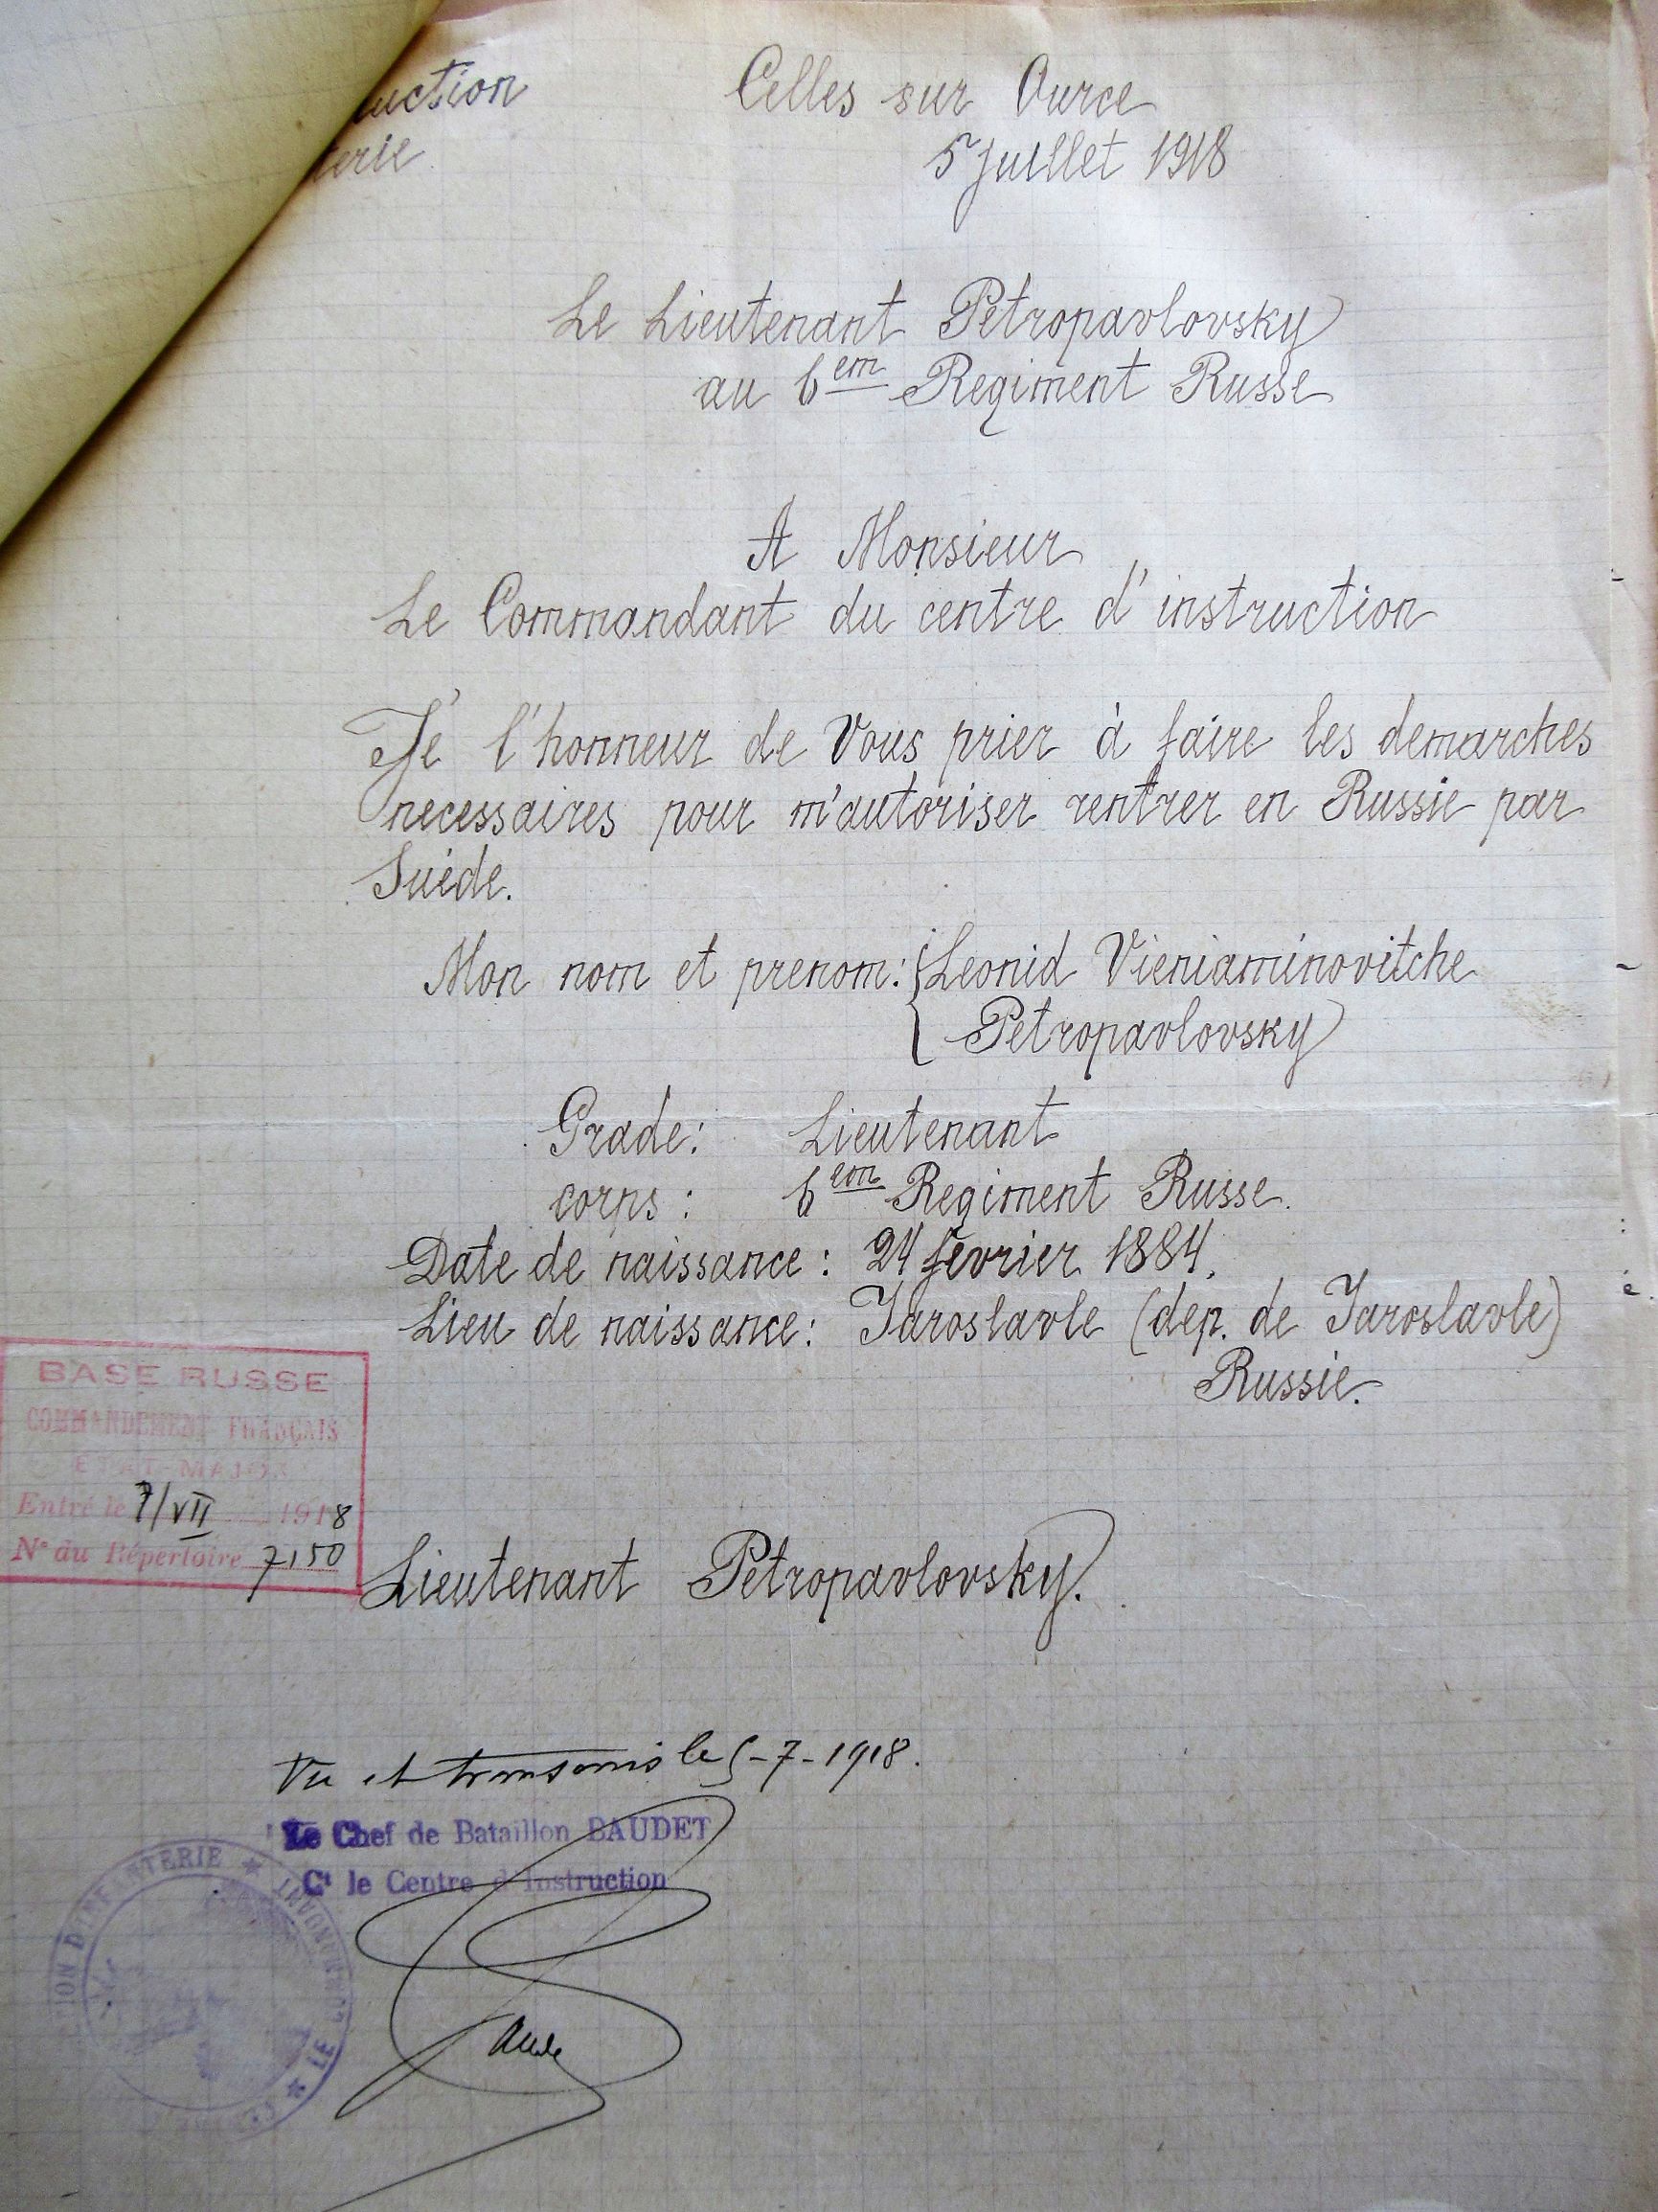 uction
terie
Celles sur Ource
5 Juillet 1918
Le Lieutenant Petropavlovsky
au 6em Regiment Russe
A Monsieur
Le Commandant du centre d'instruction
J'é l'honneur de Vous prier à faire les demarches
necessaires pour m'autoriser rentrer en Russie par
Suéde.
Mon nom et prenom: { Leonid Vieniaminovitche
Petropavlovsky
Grade: Lieutenant
corps: 6em Regiment Russe.
Date de naissance: 24 fevrier 1884.
Lieu de naissance: Jaroslavle (dep. de Jaroslavle)
Russie.
BASE RUSSE
COMMANDEMENT FRANÇAIS
ETAT-MAJOR
Entré le 7/VII 1918
N° du Répertoire 7150
Lieutenant Petropavlovsky.
Vu et transmis le 5-7-1918.
Le Chef de Bataillon BAUDET
Ct le Centre d'Instruction
TION D'INFANTERIE * * LE